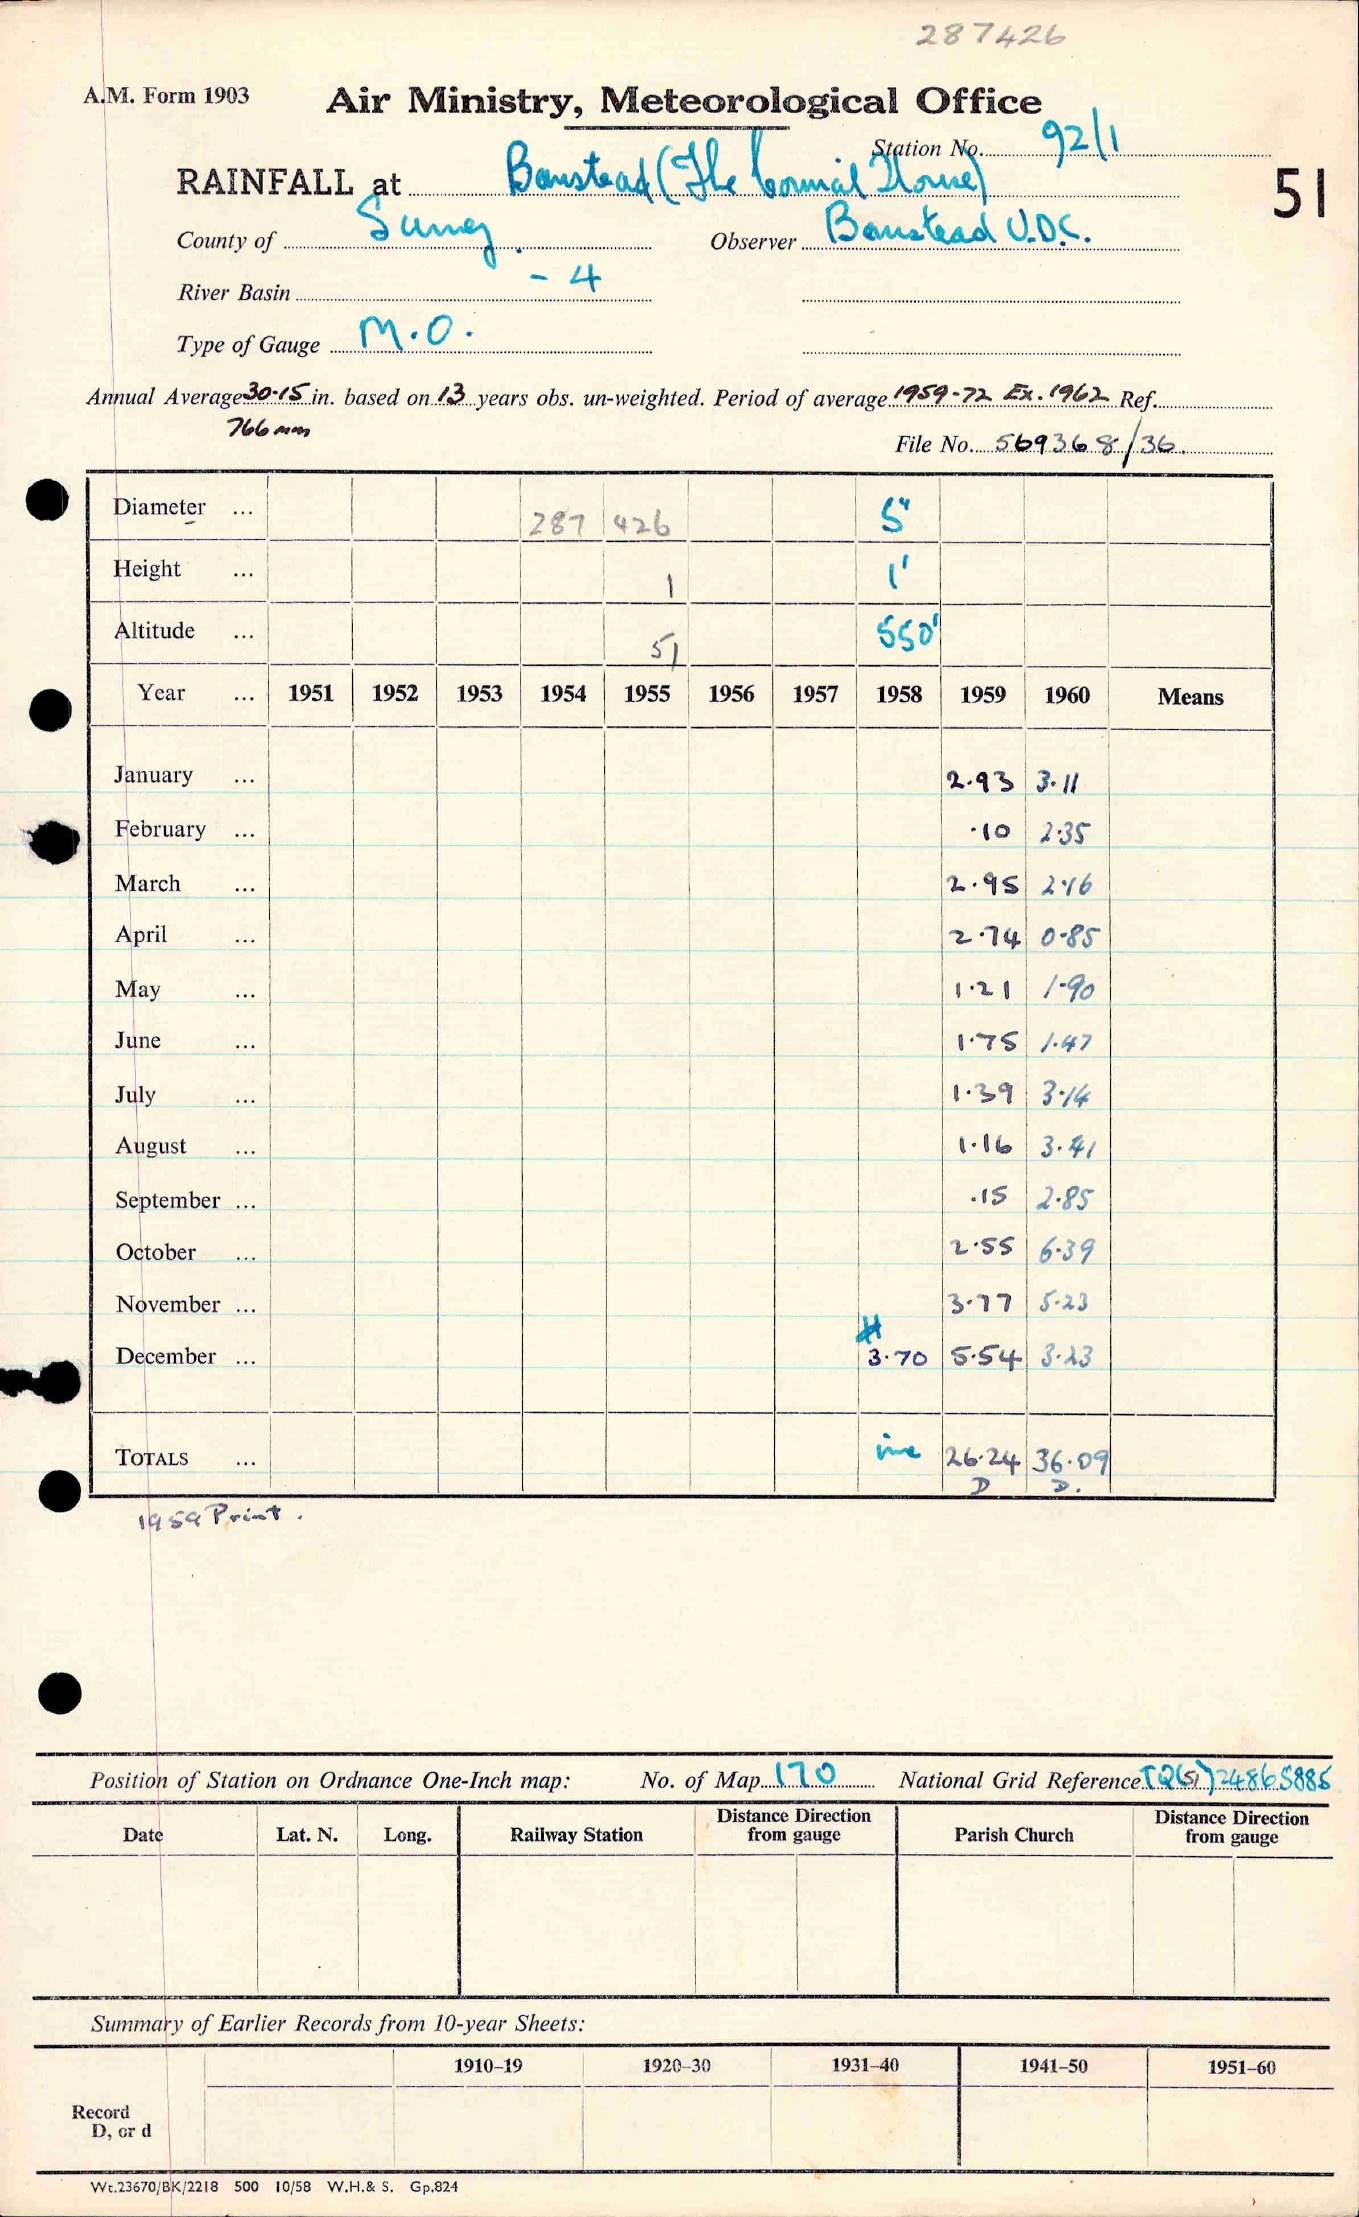 287426
A.M. Form 1903
Air Ministry, Meteorological Office
Station No. 92/1
RAINFALL at Banstead (The Cornial House)
51
County of Surrey. Observer Banstead U.D.C.
River Basin - 4
Type of Gauge M.O.
Annual Average 30.15 in. based on 13 years obs. un-weighted. Period of average 1959-72 Ex. 1962 Ref.
766 mm
File No. 569368/36.
Diameter ... 287 426 5"
Height ... 1 1'
Altitude ... 51 550'
Year ... 1951 1952 1953 1954 1955 1956 1957 1958 1959 1960 Means
January ... 2.93 3.11
February ... .10 2.35
March ... 2.95 2.16
April ... 2.74 0.85
May ... 1.21 1.90
June ... 1.75 1.47
July ... 1.39 3.14
August ... 1.16 3.41
September ... .15 2.85
October ... 2.55 6.39
November ... 3.77 5.23
December ... # 3.70 5.54 3.23
TOTALS ... inc 26.24 36.09
D D.
1959 Print.
Position of Station on Ordnance One-Inch map: No. of Map 170 National Grid Reference TQ(51)24865885
Date Lat. N. Long. Railway Station Distance Direction from gauge Parish Church Distance Direction from gauge
Summary of Earlier Records from 10-year Sheets:
1910–19 1920–30 1931–40 1941–50 1951–60
Record
D, or d
Wt.23670/BK/2218 500 10/58 W.H.& S. Gp.824